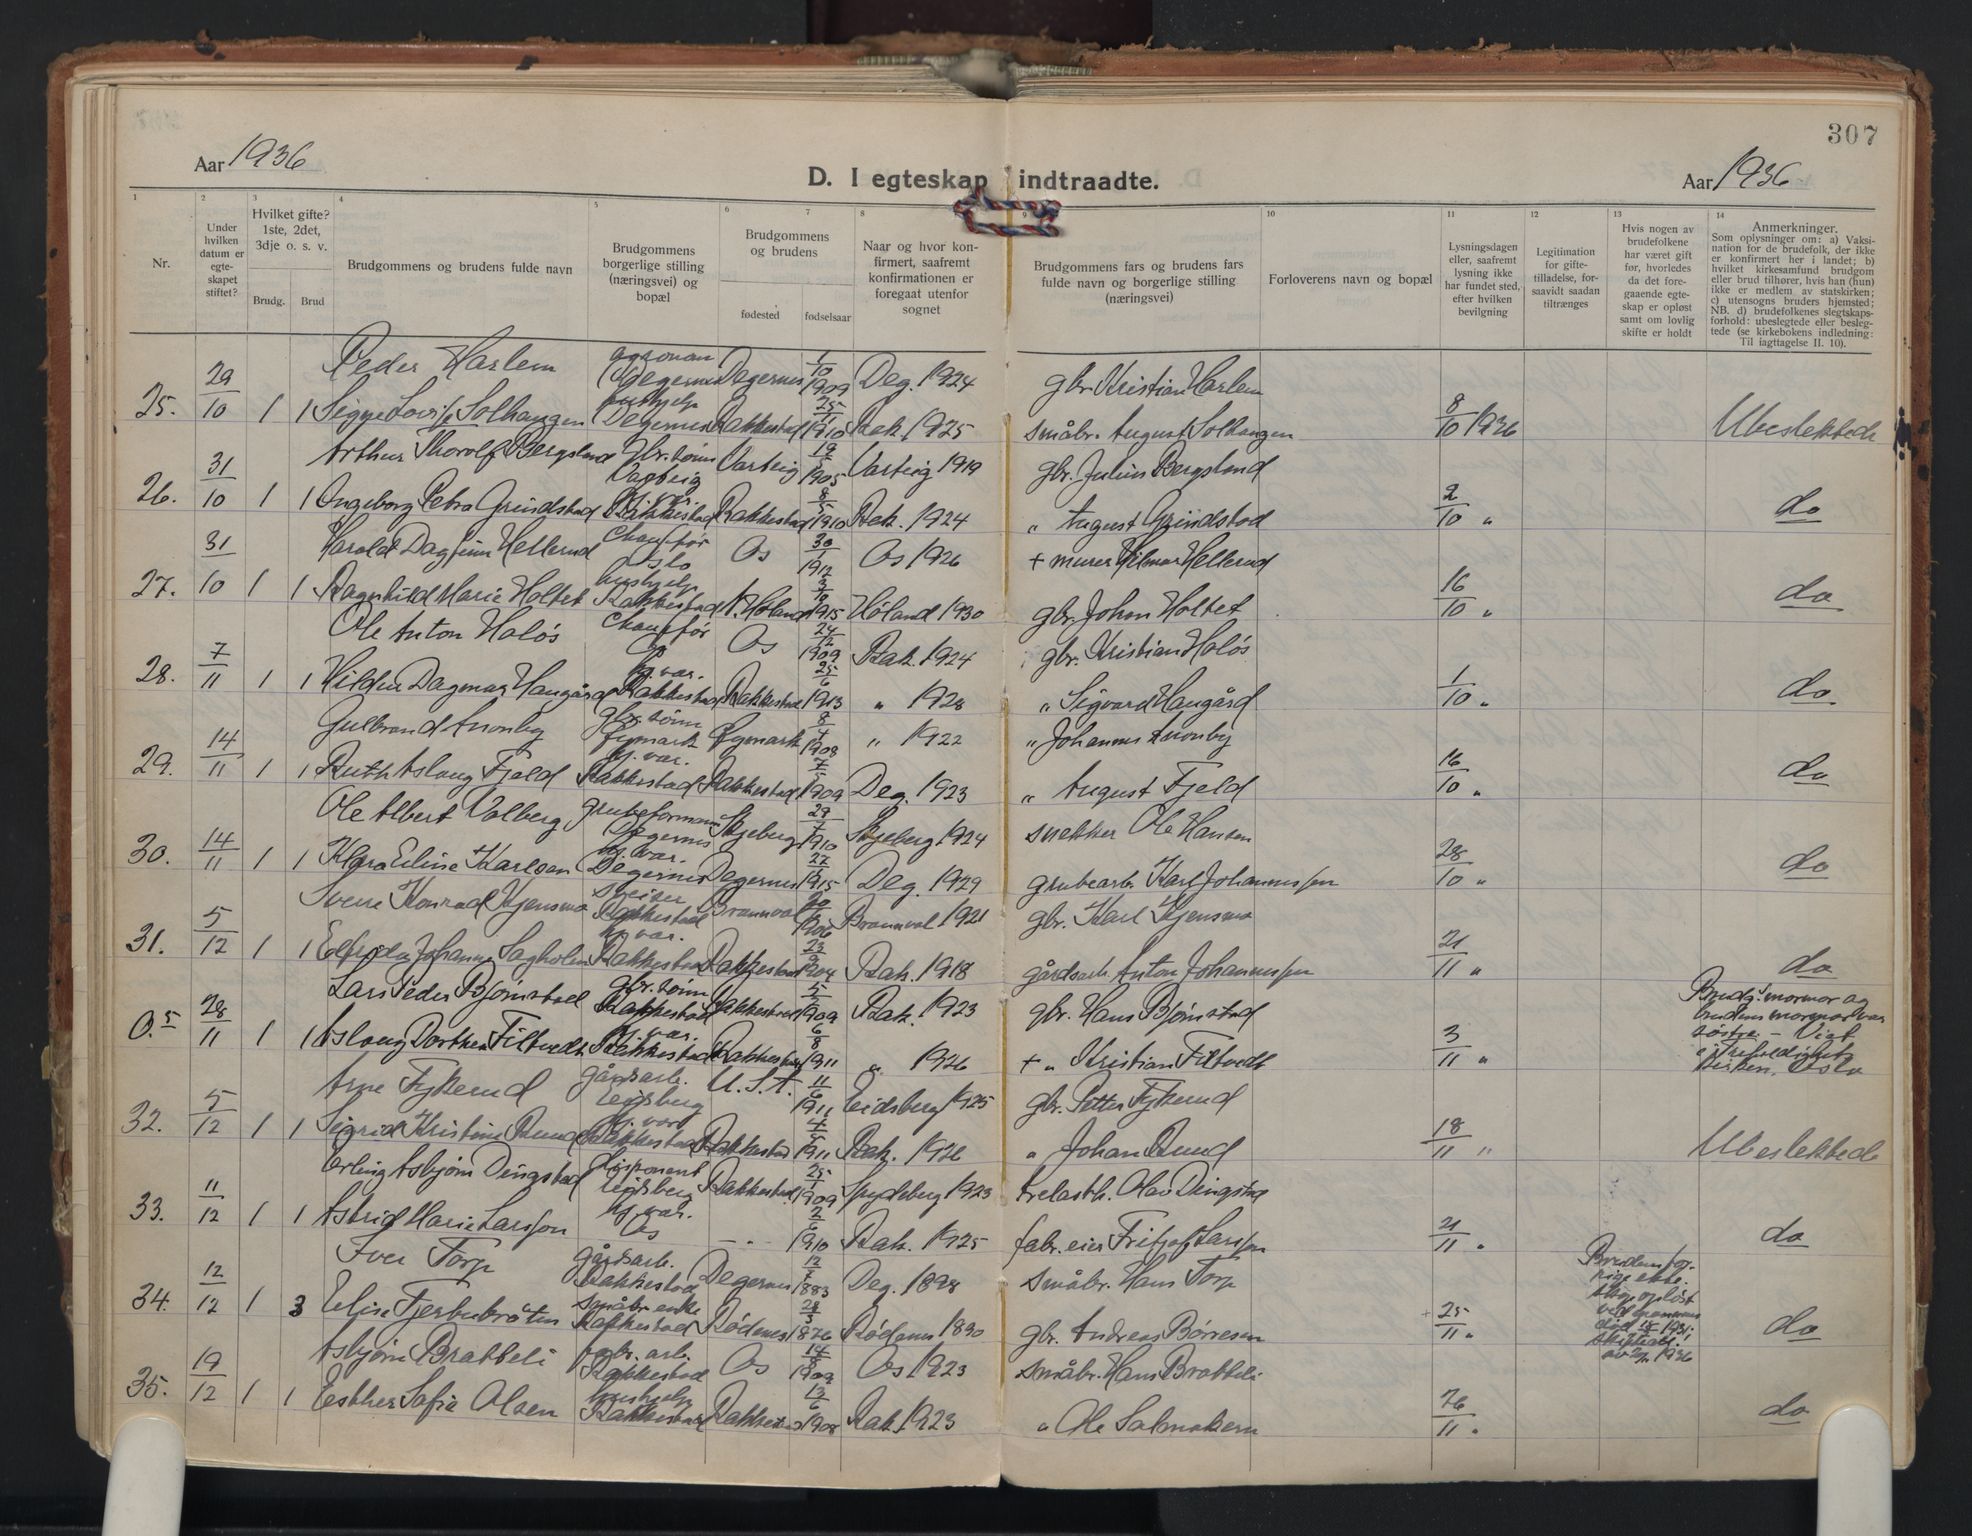 307
Aar 1936
D. I egteskap indtraadte.
Aar 1936
1 2 3 4 5 6 7 8 9 10 11 12 13 14
Nr.
Under hvilken datum er egte-skapet stiftet?
Hvilket gifte? 1ste, 2det, 3dje o. s. v.
Brudg. Brud
Brudgommens og brudens fulde navn
Brudgommens borgerlige stilling (næringsvei) og bopæl
Brudgommens og brudens
fødested fødselsaar
Naar og hvor kon-firmert, saafremt konfirmationen er foregaat utenfor sognet
Brudgommens fars og brudens fars fulde navn og borgerlige stilling (næringsvei)
Forloverens navn og bopæl
Lysningsdagen eller, saafremt lysning ikke har fundet sted, efter hvilken bevilgning
Legitimation for gifte-tilladelse, for-saavidt saadan tiltrænges
Hvis nogen av brudefolkene har været gift før, hvorledes da det fore-gaaende egte-skap er opløst samt om lovlig skifte er holdt
Anmerkninger.
Som oplysninger om: a) Vaksi-nation for de brudefolk, der ikke er konfirmert her i landet; b) hvilket kirkesamfund brudgom eller brud tilhører, hvis han (hun) ikke er medlem av statskirken; c) utensogns bruders hjemsted; NB. d) brudefolkenes slegtskaps-forhold: ubeslegtede eller besleg-tede (se kirkebokens indledning: Til iagttagelse II. 10).
Peder Harlem Degernes Degernes 1/10 1909 Deg. 1924 gbr. Kristian Harlem
25. 29/10 1 1 Signe Lovise Solhaugen Degernes Rakkestad 1910 Rak. 1925 småbr. August Solhaugen 8/10 1936 Ubeslektede
Arthur Thorolf Bergsland gbr.sønn Varteig Varteig 1905 Varteig 1919 gbr. Julius Bergsland
26. 31/10 1 1 Ingeborg Petra Grindstad Rakkestad Rakkestad 8/5 1910 Rak. 1924 " August Grindstad 2/10 " do
Harald Dagfinn Hellerud chauffør Oslo Os 30/1 1912 Os 1926 + murer Hilmar Hellerud
27. 31/10 1 1 Ragnhild Marie Holtet hushjelp Rakkestad N. Høland 1915 Høland 1930 gbr. Johan Holtet 16/10 " do
Ole Anton Holøs chauffør Os Os 24/12 1909 Rak. 1924 gbr. Kristian Holøs
28. 7/11 1 1 Hildur Dagmar Haugård hj. var. Rakkestad Rakkestad 25/6 1913 " 1928 " Sigvard Haugård 1/10 " do
Gulbrand Aronby gbr.sønn Øymark Øymark 8/4 1908 " 1922 " Johannes Aronby
29. 14/11 1 1 Ruth Aslaug Fjeld hj. var. Rakkestad Rakkestad 7/5 1909 Deg. 1923 " August Fjeld 16/10 " do
Ole Albert Valberg grubeformann Degernes Skjeberg 29/7 1910 Skjeberg 1924 snekker Ole Hansen
30. 14/11 1 1 Klara Eline Karlsen hj. var. Degernes Degernes 1915 Deg. 1929 grubearb. Karl Johannessen 28/10 " do
Sverre Konrad Kjensmo sveiser Rakkestad Brannval 1906 Brannval 1921 gbr. Karl Kjensmo
31. 5/12 1 1 Johanne Sagholen hj. var. Rakkestad Rakkestad 1904 Rak. 1918 gårdsarb. Anton Johannessen 21/11 " do
Lars Peder Bjørnstad gbr.sønn Rakkestad Rakkestad 1909 Rak. 1923 gbr. Hans Bjørnstad
O.5 28/11 1 1 Aslaug Dorthea Filtvedt hj. var. Rakkestad Rakkestad 6/8 1911 " 1926 + " Kristian Filtvedt 3/11 "
Brudg.s mormor og
brudens mormor var
søstre – Viet
i Trefoldighets
kirken, Oslo
Arne Fykerud gårdsarb. Eidsberg U.S.A. 11/6 1911 Eidsberg 1925 gbr. Petter Fykerud
32. 5/12 1 1 Sigrid Kristine Rud hj. var. Rakkestad Rakkestad 1911 Rak. 1926 " Johan Rud 18/11 " Ubeslektede
Erling Asbjørn Dingstad disponent Eidsberg Rakkestad 25/1 1909 Spydeberg 1923 trelasth. Olav Dingstad
33. 11/12 1 1 Astrid Marie Larsson hj. var. Os –"– 2/6 1910 Rak. 1925 fabr.eier Fritjof Larsson 21/11 " do
Iver Torp gårdsarb. Rakkestad Degernes 1883 Deg. 1898 småbr. Hans Torp
34. 12/12 1 3 Eline Fjerbubråten småbr.enke Rakkestad Rødenes 1876 Rødenes 1890 gbr. Andreas Børresen 25/11 "
Brudens for-
rige ekte-
skap opløst
ved mannens
død 1931;
skifteatt.
av 1936
do
Asbjørn Bratteli Rakkestad Os 14/8 1909 Os 1923 småbr. Hans Bratteli
35. 19/12 1 1 Esther Sofie Olsen hushjelp Rakkestad Rakkestad 13/6 1908 Rak. 1923 " Ole Salmakern 26/11 " do